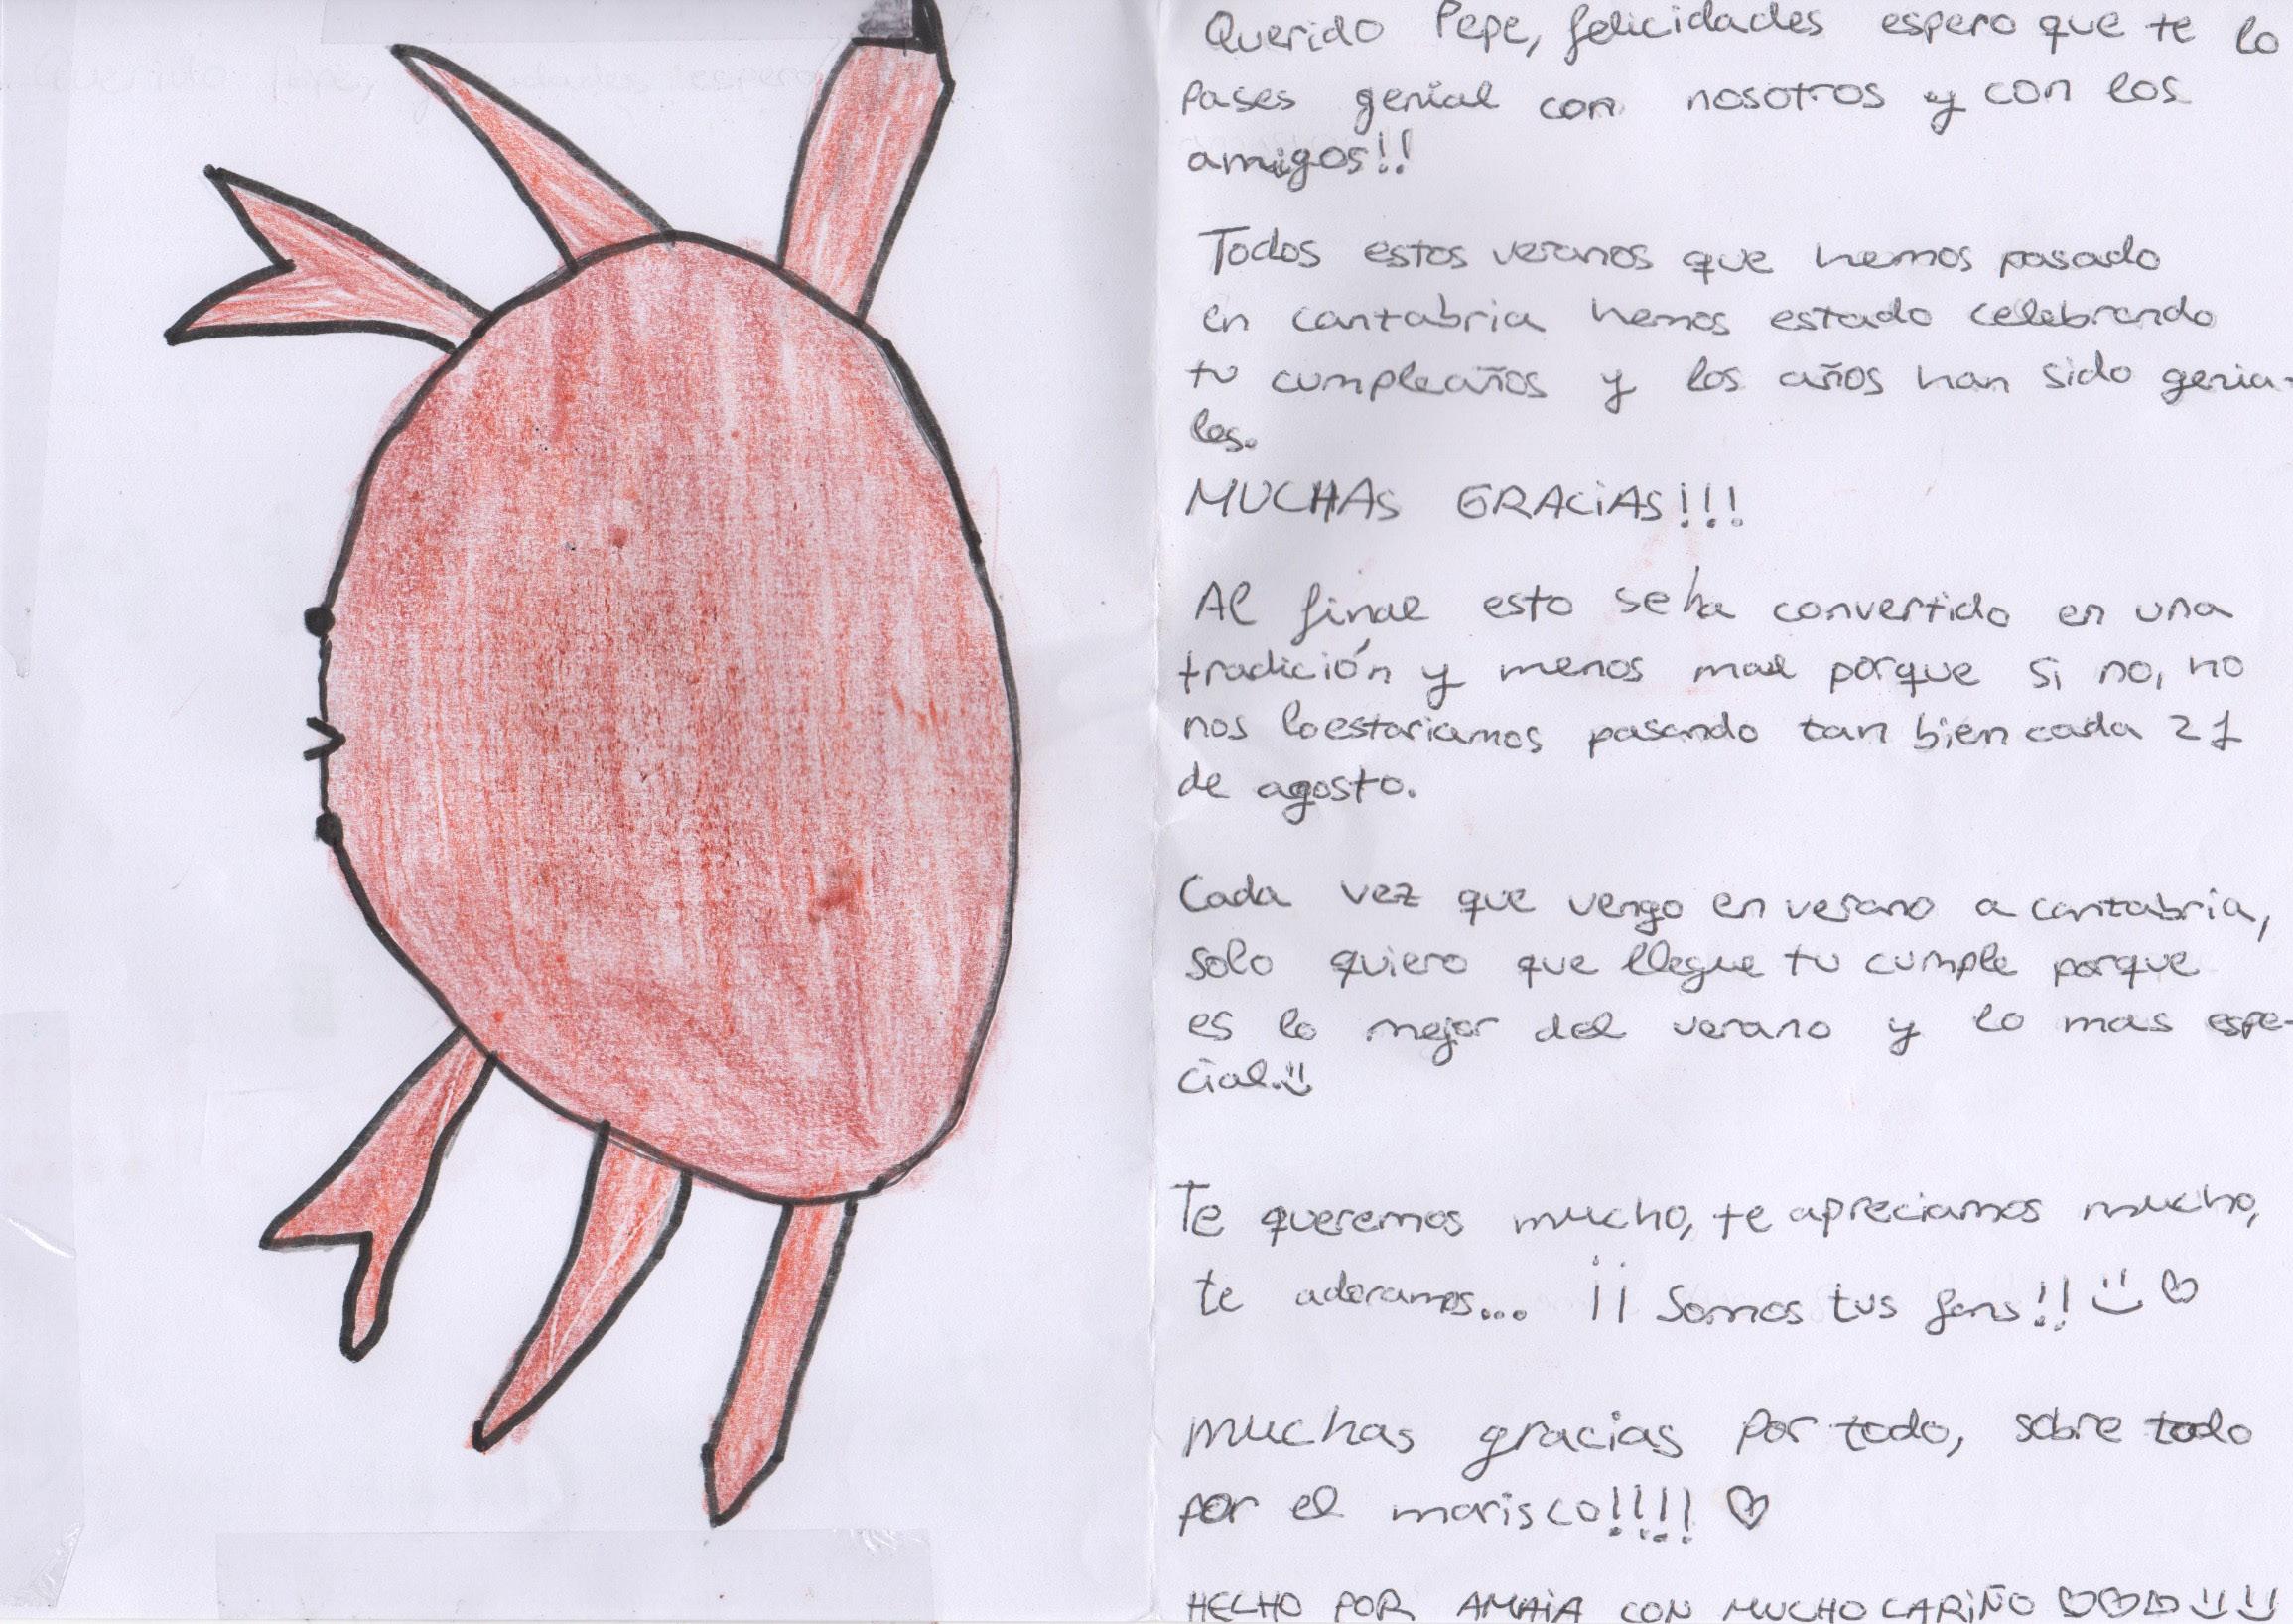 Querido Pepe, felicidades espero que te lo
pases genial con nosotros y con los
amigos!!
Todos estos veranos que hemos pasado
en cantabria hemos estado celebrando
tu cumpleaños y los años han sido genia-
les.
MUCHAS GRACiAS!!!
Al final esto se ha convertido en una
tradición y menos mal porque si no, no
nos loestariamos pasando tan bien cada 21
de agosto.
Cada vez que vengo en verano a cantabria,
solo quiero que llegue tu cumple porque
es lo mejor del verano y lo mas espe-
cial.
Te queremos mucho, te apreciamos mucho,
te adoramos... ¡¡Somos tus fans!!
muchas gracias por todo, sobre todo
por el marisco!!!!
HECHO POR AMAiA CON MUCHO CARIÑO